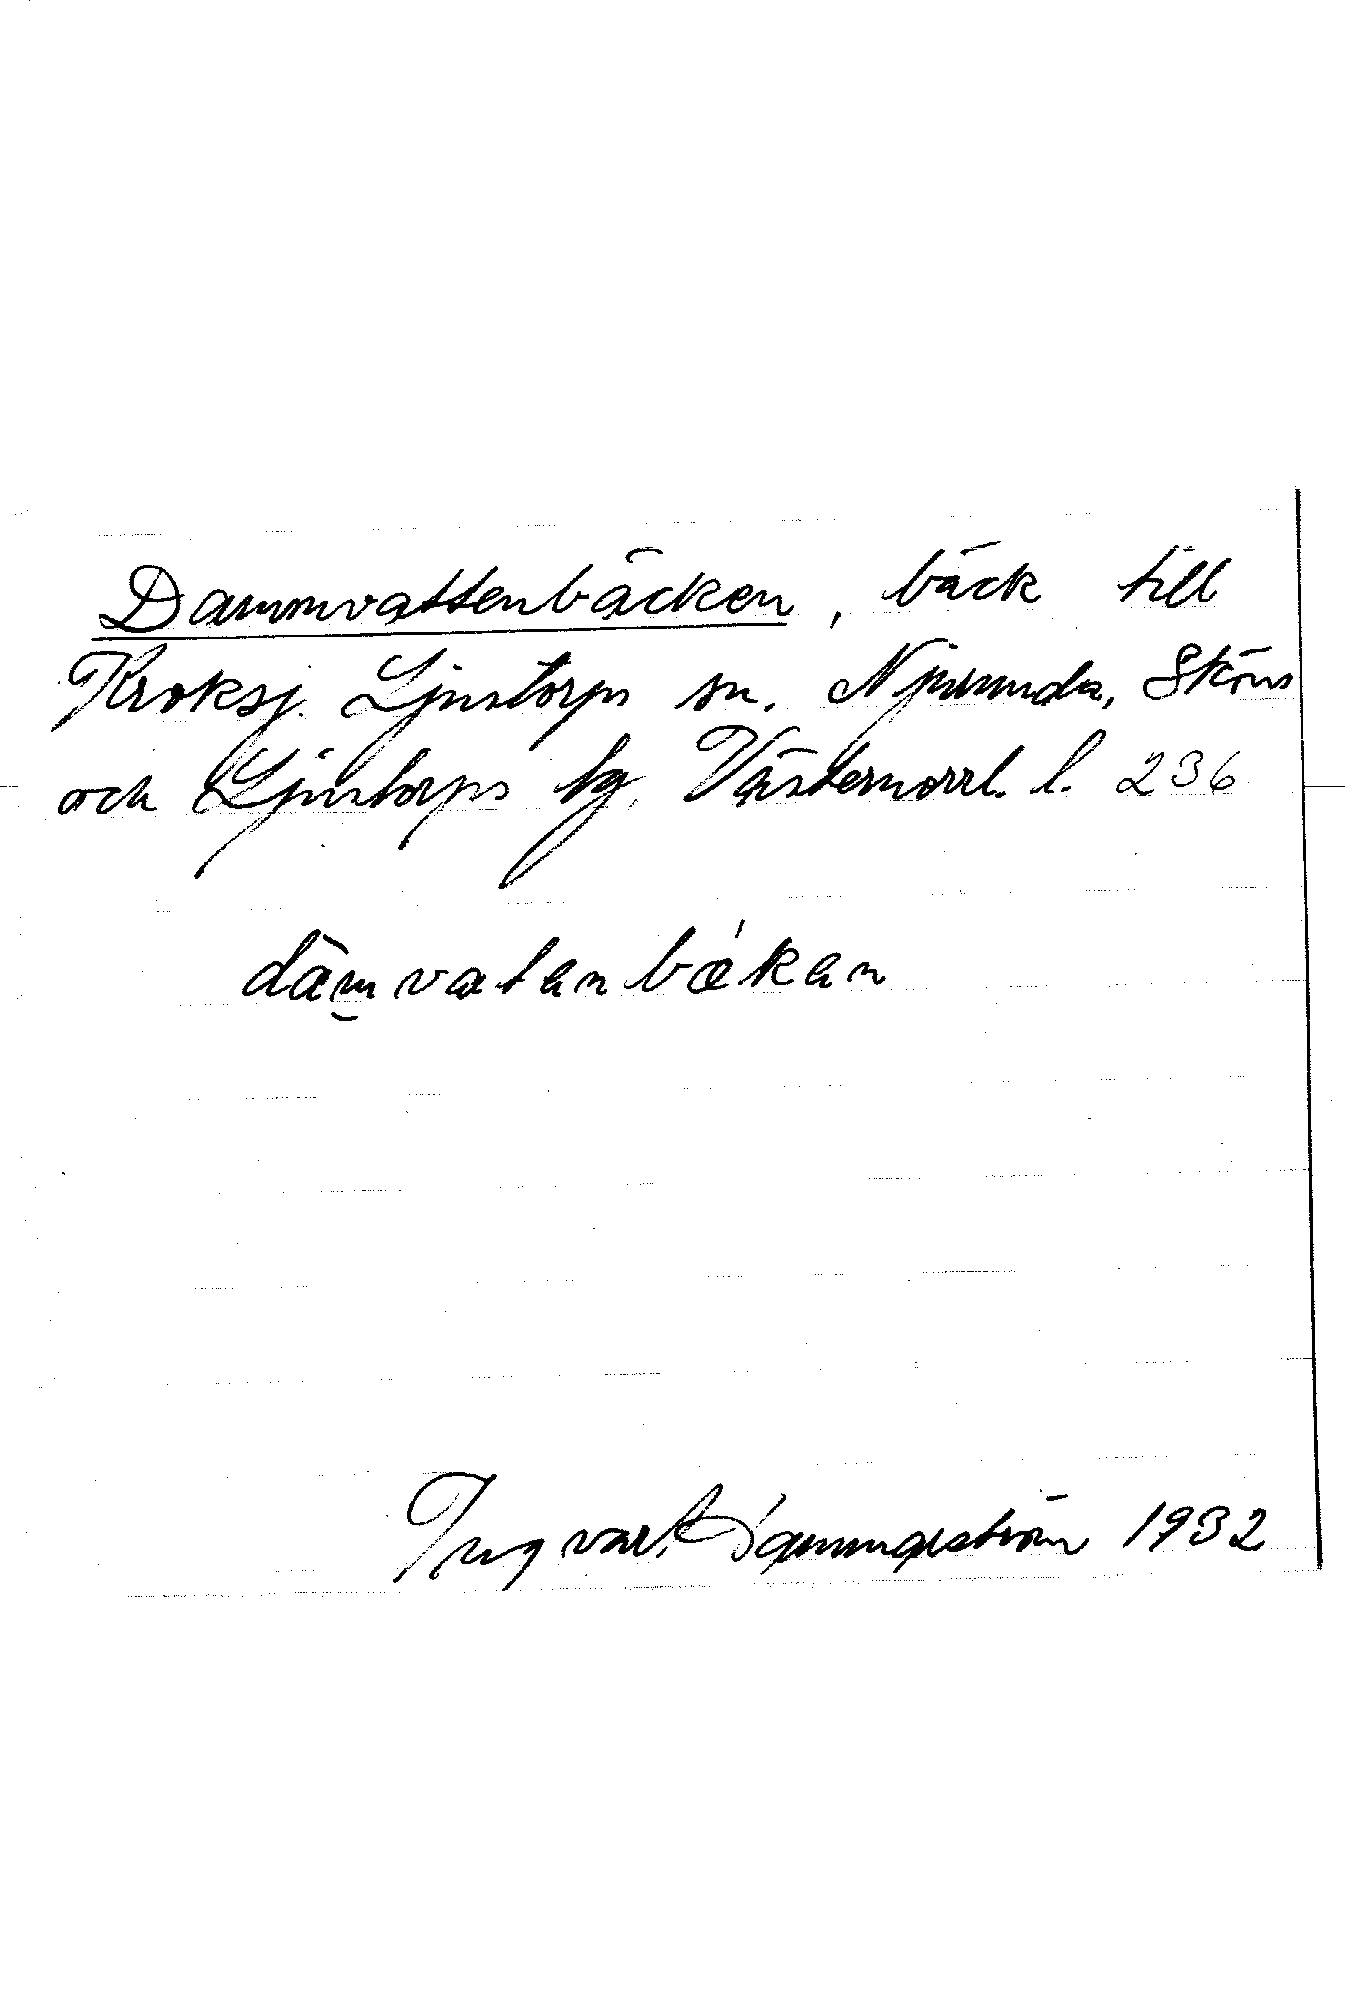 Dammvattenbäcken, bäck till
Kroksj. Ljustorps sn. Njurunda, Sköns
och Ljustorps tg. Västernorrl. l. 236
dämvatanbækan
Ingvar 1932